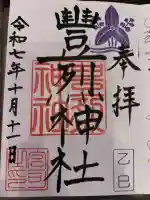 奉拝
乙巳
豐烈神社
令和七年十月十二日